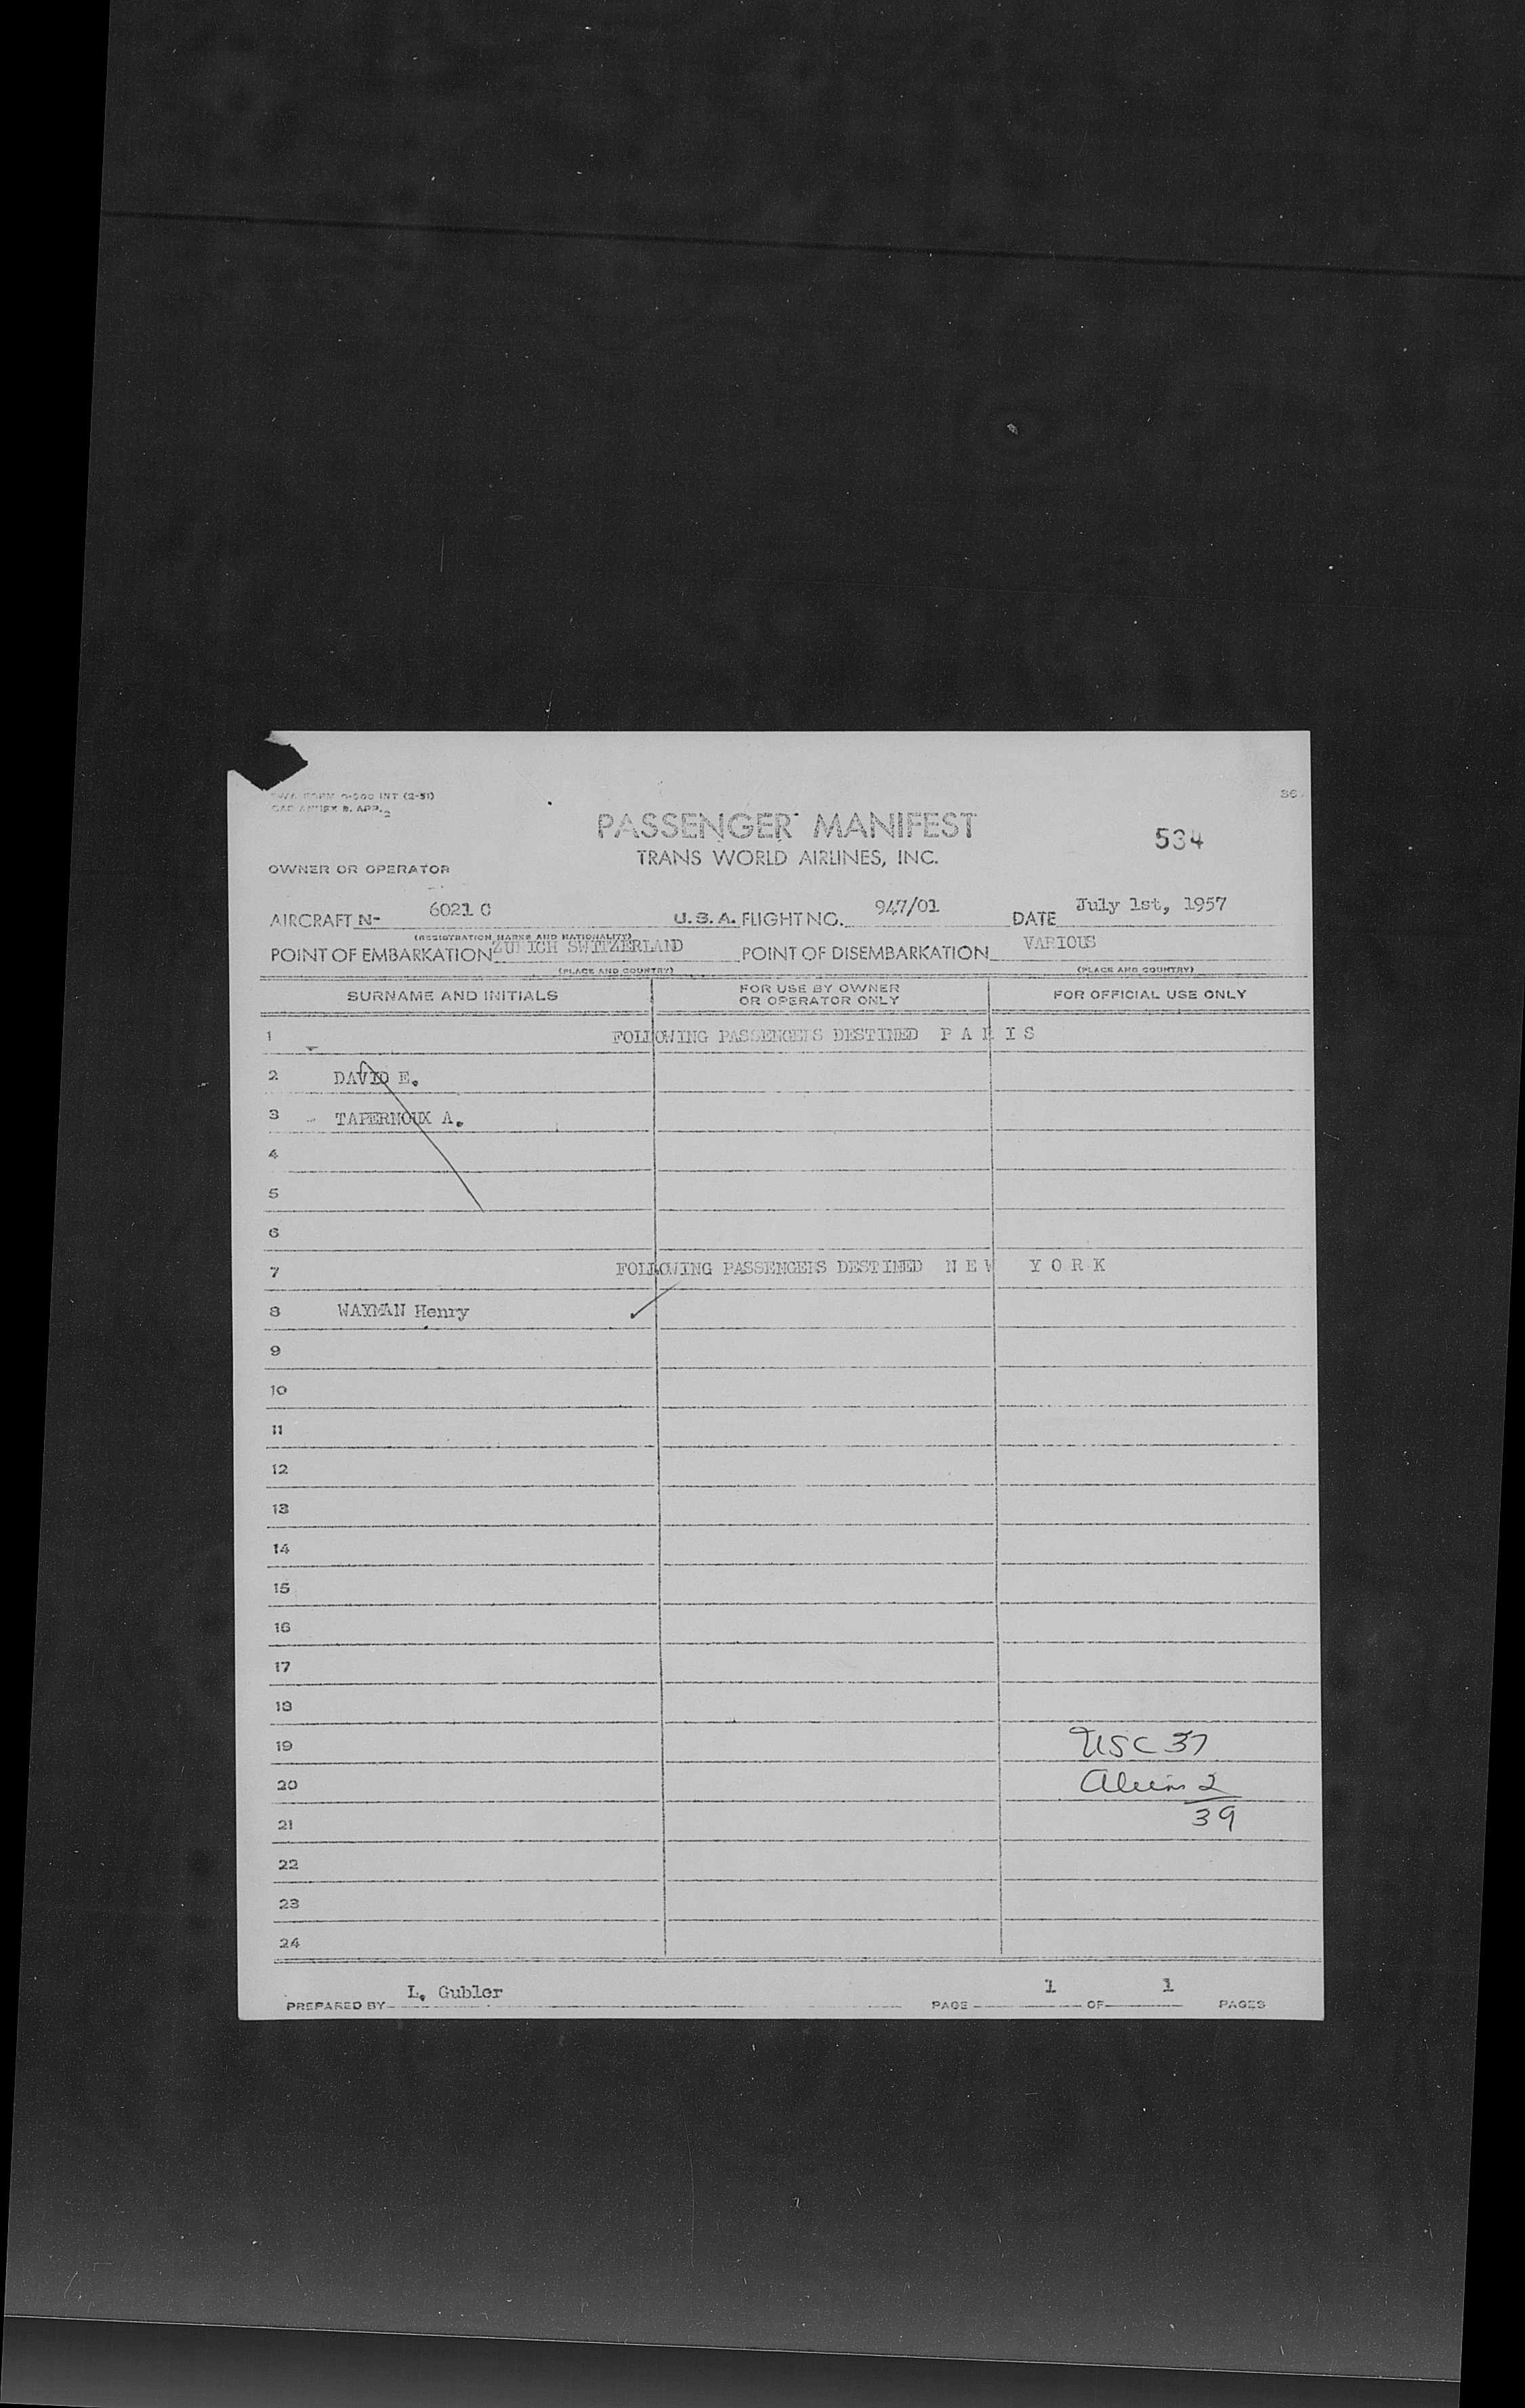 INT (2-51)
36
PASSENGER MANIFEST
534
TRANS WORLD AIRLINES, INC.
OWNER OR OPERATOR
AIRCRAFT N- 6021 C U.S.A. FLIGHT NO. 947/01 DATE July 1st, 1957
(REGISTRATION MARKS AND NATIONALITY)
POINT OF EMBARKATION ZURICH SWITZERLAND POINT OF DISEMBARKATION VARIOUS
(PLACE AND COUNTRY) (PLACE AND COUNTRY)
SURNAME AND INITIALS FOR USE BY OWNER OR OPERATOR ONLY FOR OFFICIAL USE ONLY
1 FOLLOWING PASSENGERS DESTINED P A R I S
2 DAVID E.
3 TAPERNOUX A.
4
5
6
7 FOLLOWING PASSENGERS DESTINED N E W Y O R K
8 WAYMAN Henry
9
10
11
12
13
14
15
16
17
18
19 USC 37
20 Aliens 2
21 39
22
23
24
PREPARED BY L. Gubler PAGE 1 OF 1 PAGES